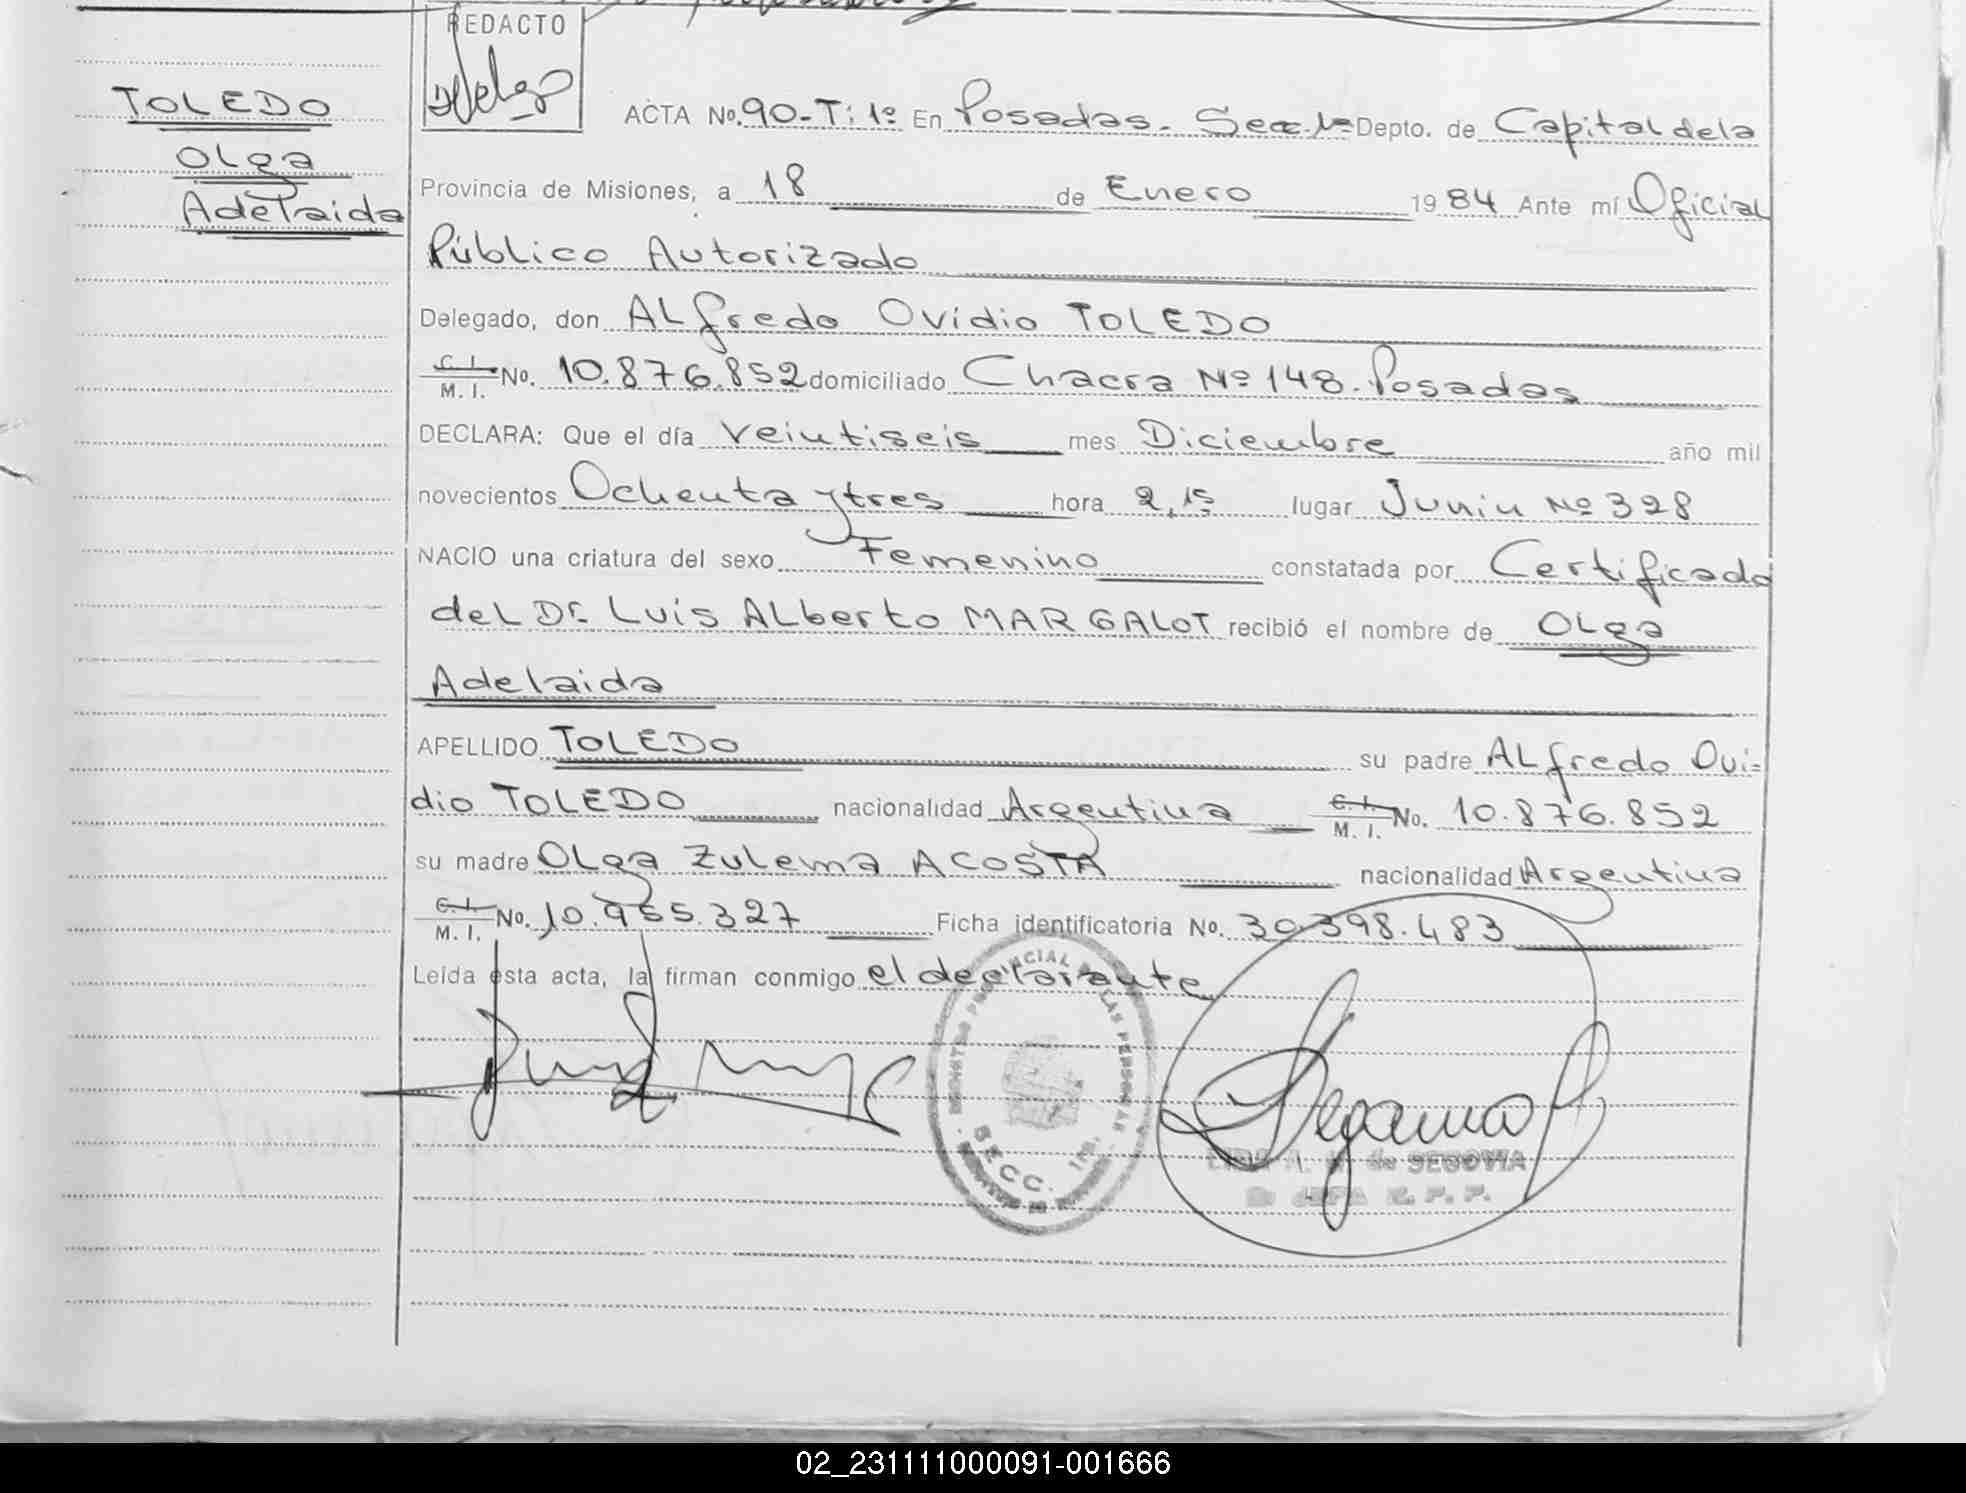 REDACTO
TOLEDO
Olga
Adelaida
ACTA No. 90-T: 1º En Posadas. Secc. 1ª Depto. de Capital dela
Provincia de Misiones, a 18 de Enero 1984 Ante mí Oficial
Público Autorizado
Delegado, don ALfredo Ovidio TOLEDO
C. I. M. I. No. 10.876.852 domiciliado Chacra Nº 148. Posadas
DECLARA: Que el día Veintiseis mes Diciembre año mil
novecientos Ochenta y tres hora 2,15 lugar Junin Nº 328
NACIO una criatura del sexo Femenino constatada por Certificado
del Dr. Luis ALberto MARGALOT recibió el nombre de OLga
Adelaida
APELLIDO TOLEDO su padre ALfredo Ovi=
dio TOLEDO nacionalidad Argentina C. I. M. I. No. 10.876.852
su madre OLga Zulema ACOSTA nacionalidad Argentina
C. I. M. I. No. 10.955.327 Ficha identificatoria No. 30.398.483
Leída esta acta, la firman conmigo el declarante
REGISTRO PROVINCIAL DE LAS PERSONAS
SECC. 1RA.
de SEGOVIA
02_231111000091-001666